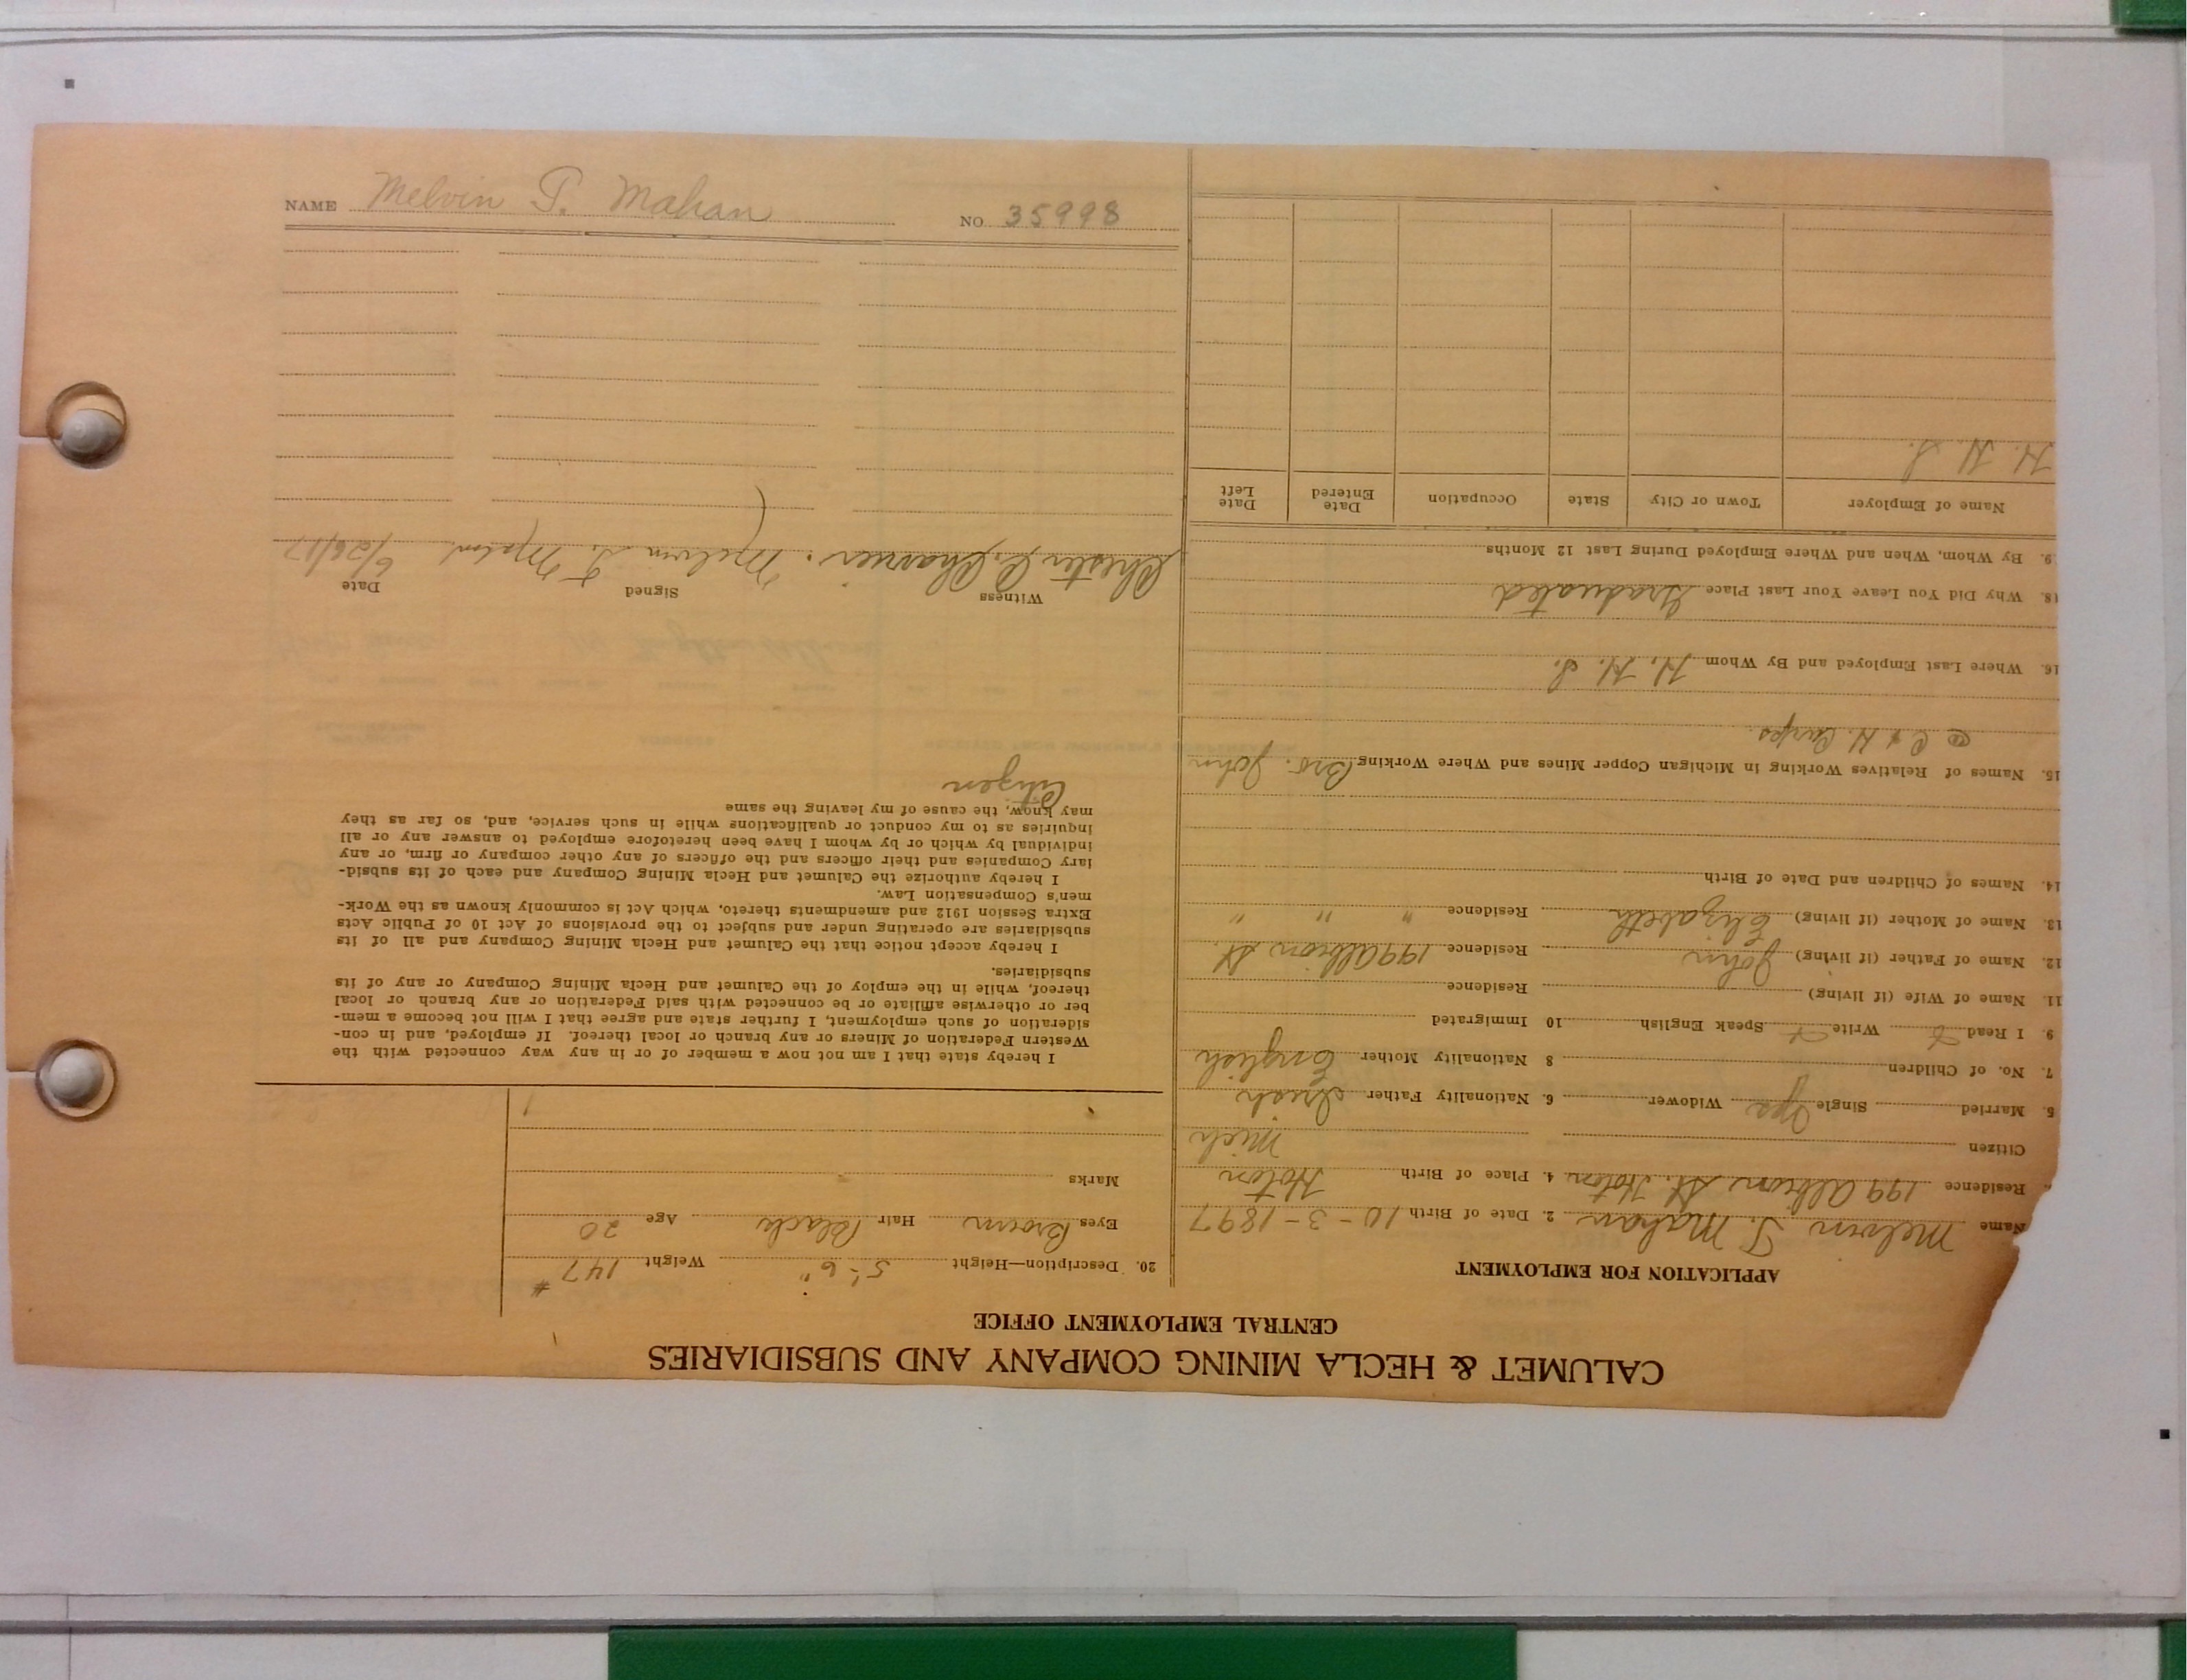 CALUMET & HECLA MINING COMPANY AND SUBSIDIARIES
CENTRAL EMPLOYMENT OFFICE
APPLICATION FOR EMPLOYMENT
Name Melvin T. Mahan 2. Date of Birth 10-3-1897
Residence 199 Albion St. Hoton 4. Place of Birth Hoton
Citizen Mich
5. Married Single Yes Widower 6. Nationality Father Irish
7. No. of Children 8 Nationality Mother English
9. I Read Write Speak English 10 Immigrated
11. Name of Wife (if living) Residence
12. Name of Father (if living) John Residence 199 Albion St.
13. Name of Mother (if living) Elizabeth Residence " " "
14. Names of Children and Date of Birth
15. Names of Relatives Working in Michigan Copper Mines and Where Working Bro. John
C & H.
16. Where Last Employed and By Whom H. H. S.
18. Why Did You Leave Your Last Place Graduated
9. By Whom, When and Where Employed During Last 12 Months
Name of Employer Town or City State Occupation Date Entered Date Left
H. H. S.
20. Description—Height 5'-6" Weight 147 #
Eyes Brown Hair Black Age 20
Marks
I hereby state that I am not now a member of or in any way connected with the
Western Federation of Miners or any branch or local thereof. If employed, and in con-
sideration of such employment, I further state and agree that I will not become a mem-
ber or otherwise affiliate or be connected with said Federation or any branch or local
thereof, while in the employ of the Calumet and Hecla Mining Company or any of its
subsidiaries.
I hereby accept notice that the Calumet and Hecla Mining Company and all of its
subsidiaries are operating under and subject to the provisions of Act 10 of Public Acts
Extra Session 1912 and amendments thereto, which Act is commonly known as the Work-
men's Compensation Law.
I hereby authorize the Calumet and Hecla Mining Company and each of its subsid-
iary Companies and their officers and the officers of any other company or firm, or any
individual by which or by whom I have been heretofore employed to answer any or all
inquiries as to my conduct or qualifications while in such service, and, so far as they
may know, the cause of my leaving the same
Citizen
Witness Signed Date
Chester C. Melvin T. Mahan 6/26/17
NAME Melvin T. Mahan NO 35998